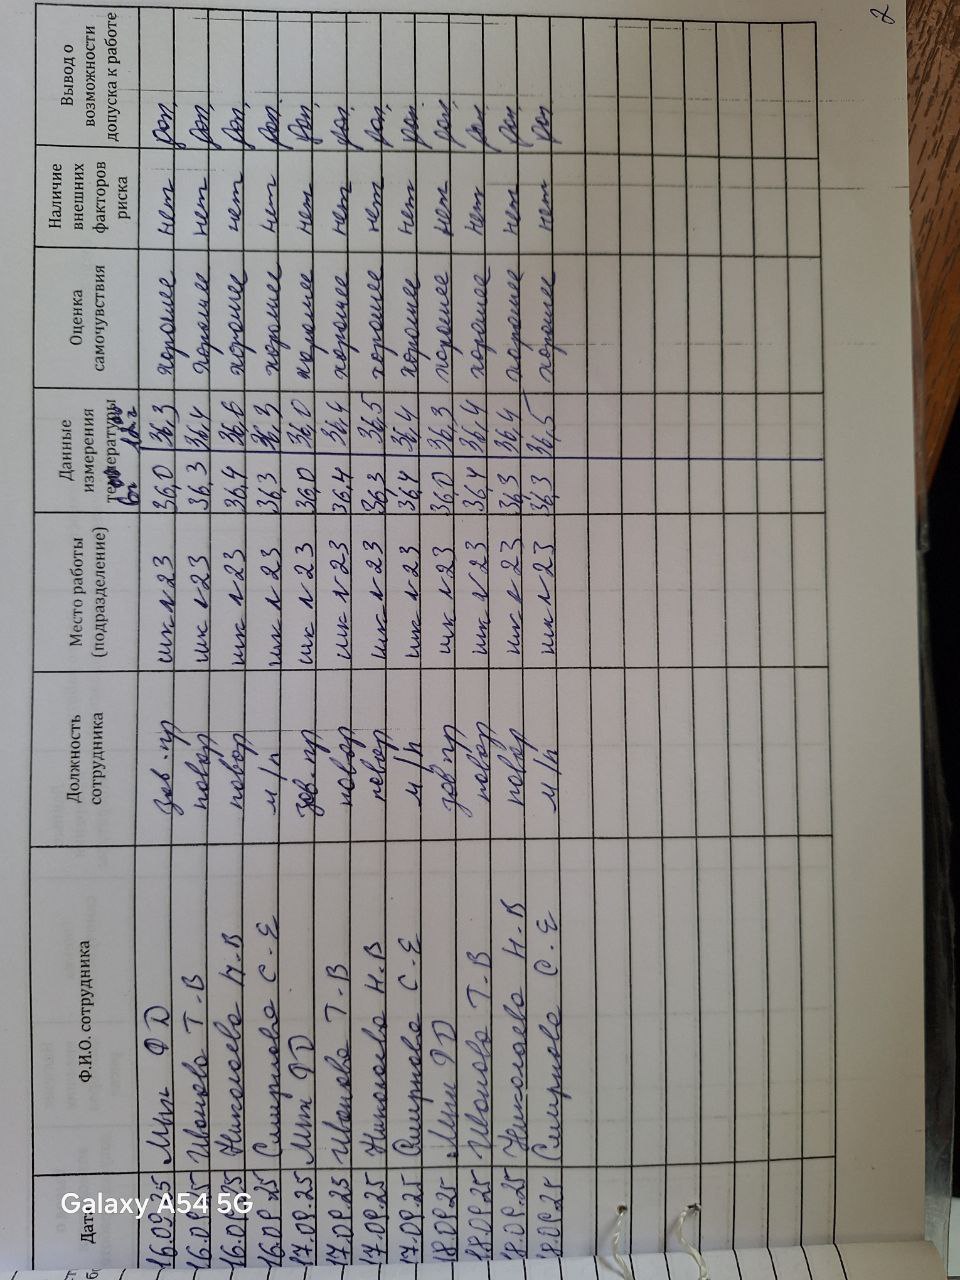 2
Дата
Ф.И.О. сотрудника
Должность сотрудника
Место работы (подразделение)
Данные измерения температуры
Оценка самочувствия
Наличие внешних факторов риска
Вывод о возможности допуска к работе
16.09.25 Мун Ф Д зав.пр шк N 23 36,0 36,3 хорошее нет доп,
16.09.25 Иванова Т.В повар шк N 23 36,3 36,4 хорошее нет доп,
16.09.25 Николаева Н.В повар шк N 23 36,4 36,6 хорошее нет доп,
16.09.25 Смирнова С.Е м/п шк N 23 36,3 36,3 хорошее нет доп.
17.09.25 Мун Ф Д зав.пр шк N 23 36,0 36,0 хорошее нет доп,
17.09.25 Иванова Т.В повар шк N 23 36,4 36,4 хорошее нет доп,
17.09.25 Николаева Н.В повар шк N 23 36,3 36,5 хорошее нет доп,
17.09.25 Смирнова С.Е м/п шк N 23 36,4 36,4 хорошее нет доп.
18.09.25 Мун Ф Д зав.пр шк N 23 36,0 36,3 хорошее нет доп,
18.09.25 Иванова Т.В повар шк N 23 36,4 36,4 хорошее нет доп
18.09.25 Николаева Н.В повар шк N 23 36,3 36,4 хорошее нет доп,
18.09.25 Смирнова С.Е м/п шк N 23 36,3 36,5 хорошее нет доп
Galaxy A54 5G